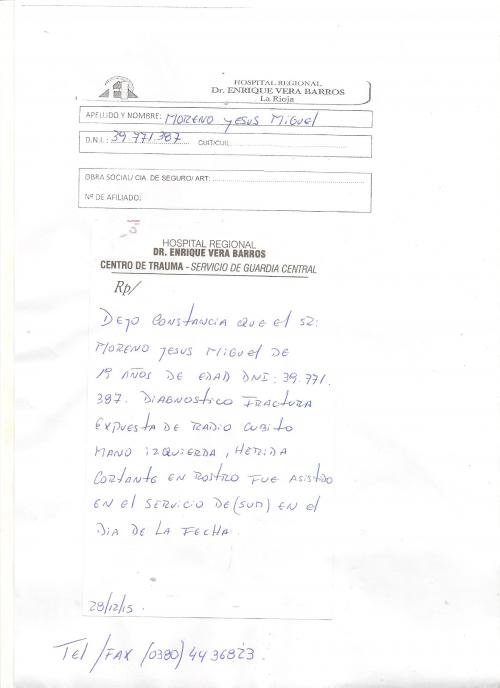 HOSPITAL REGIONAL
Dr. ENRIQUE VERA BARROS
La Rioja
APELLIDO Y NOMBRE: MORENO YESUS MIGUEL
D.N.I.: 39.771.387 CUIT/CUIL
OBRA SOCIAL/ CIA. DE SEGURO/ ART:
Nº DE AFILIADO:
HOSPITAL REGIONAL
DR. ENRIQUE VERA BARROS
CENTRO DE TRAUMA - SERVICIO DE GUARDIA CENTRAL
Rp/
DEJO CONSTANCIA QUE EL SR:
MORENO YESUS MIGUEL DE
19 AÑOS DE EDAD DNI: 39.771.
387. DIAGNOSTICO FRACTURA
EXPUESTA DE RADIO CUBITO
MANO IZQUIERDA, HERIDA
CORTANTE EN ROSTRO FUE ASISTIDO
EN EL SERVICIO DE (SUM) EN EL
DIA DE LA FECHA.
28/12/15.
TEL/FAX (0380) 4436823.